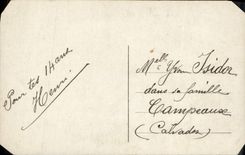 Pour tes 14 ans
Henri
Melle Yvon Isidor
dans sa famille
Campeaux
(Calvados)